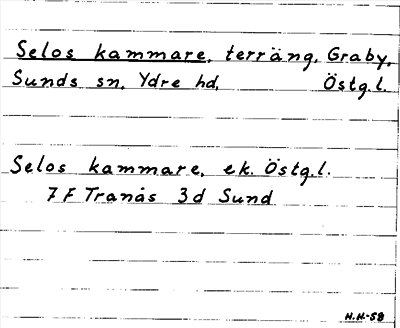 Selos kammare, terräng, Graby,
Sunds sn, Ydre hd, Östg.l.
Selos kammare, ek. Östg.l.
7 F Tranås 3d Sund
H.H.-58